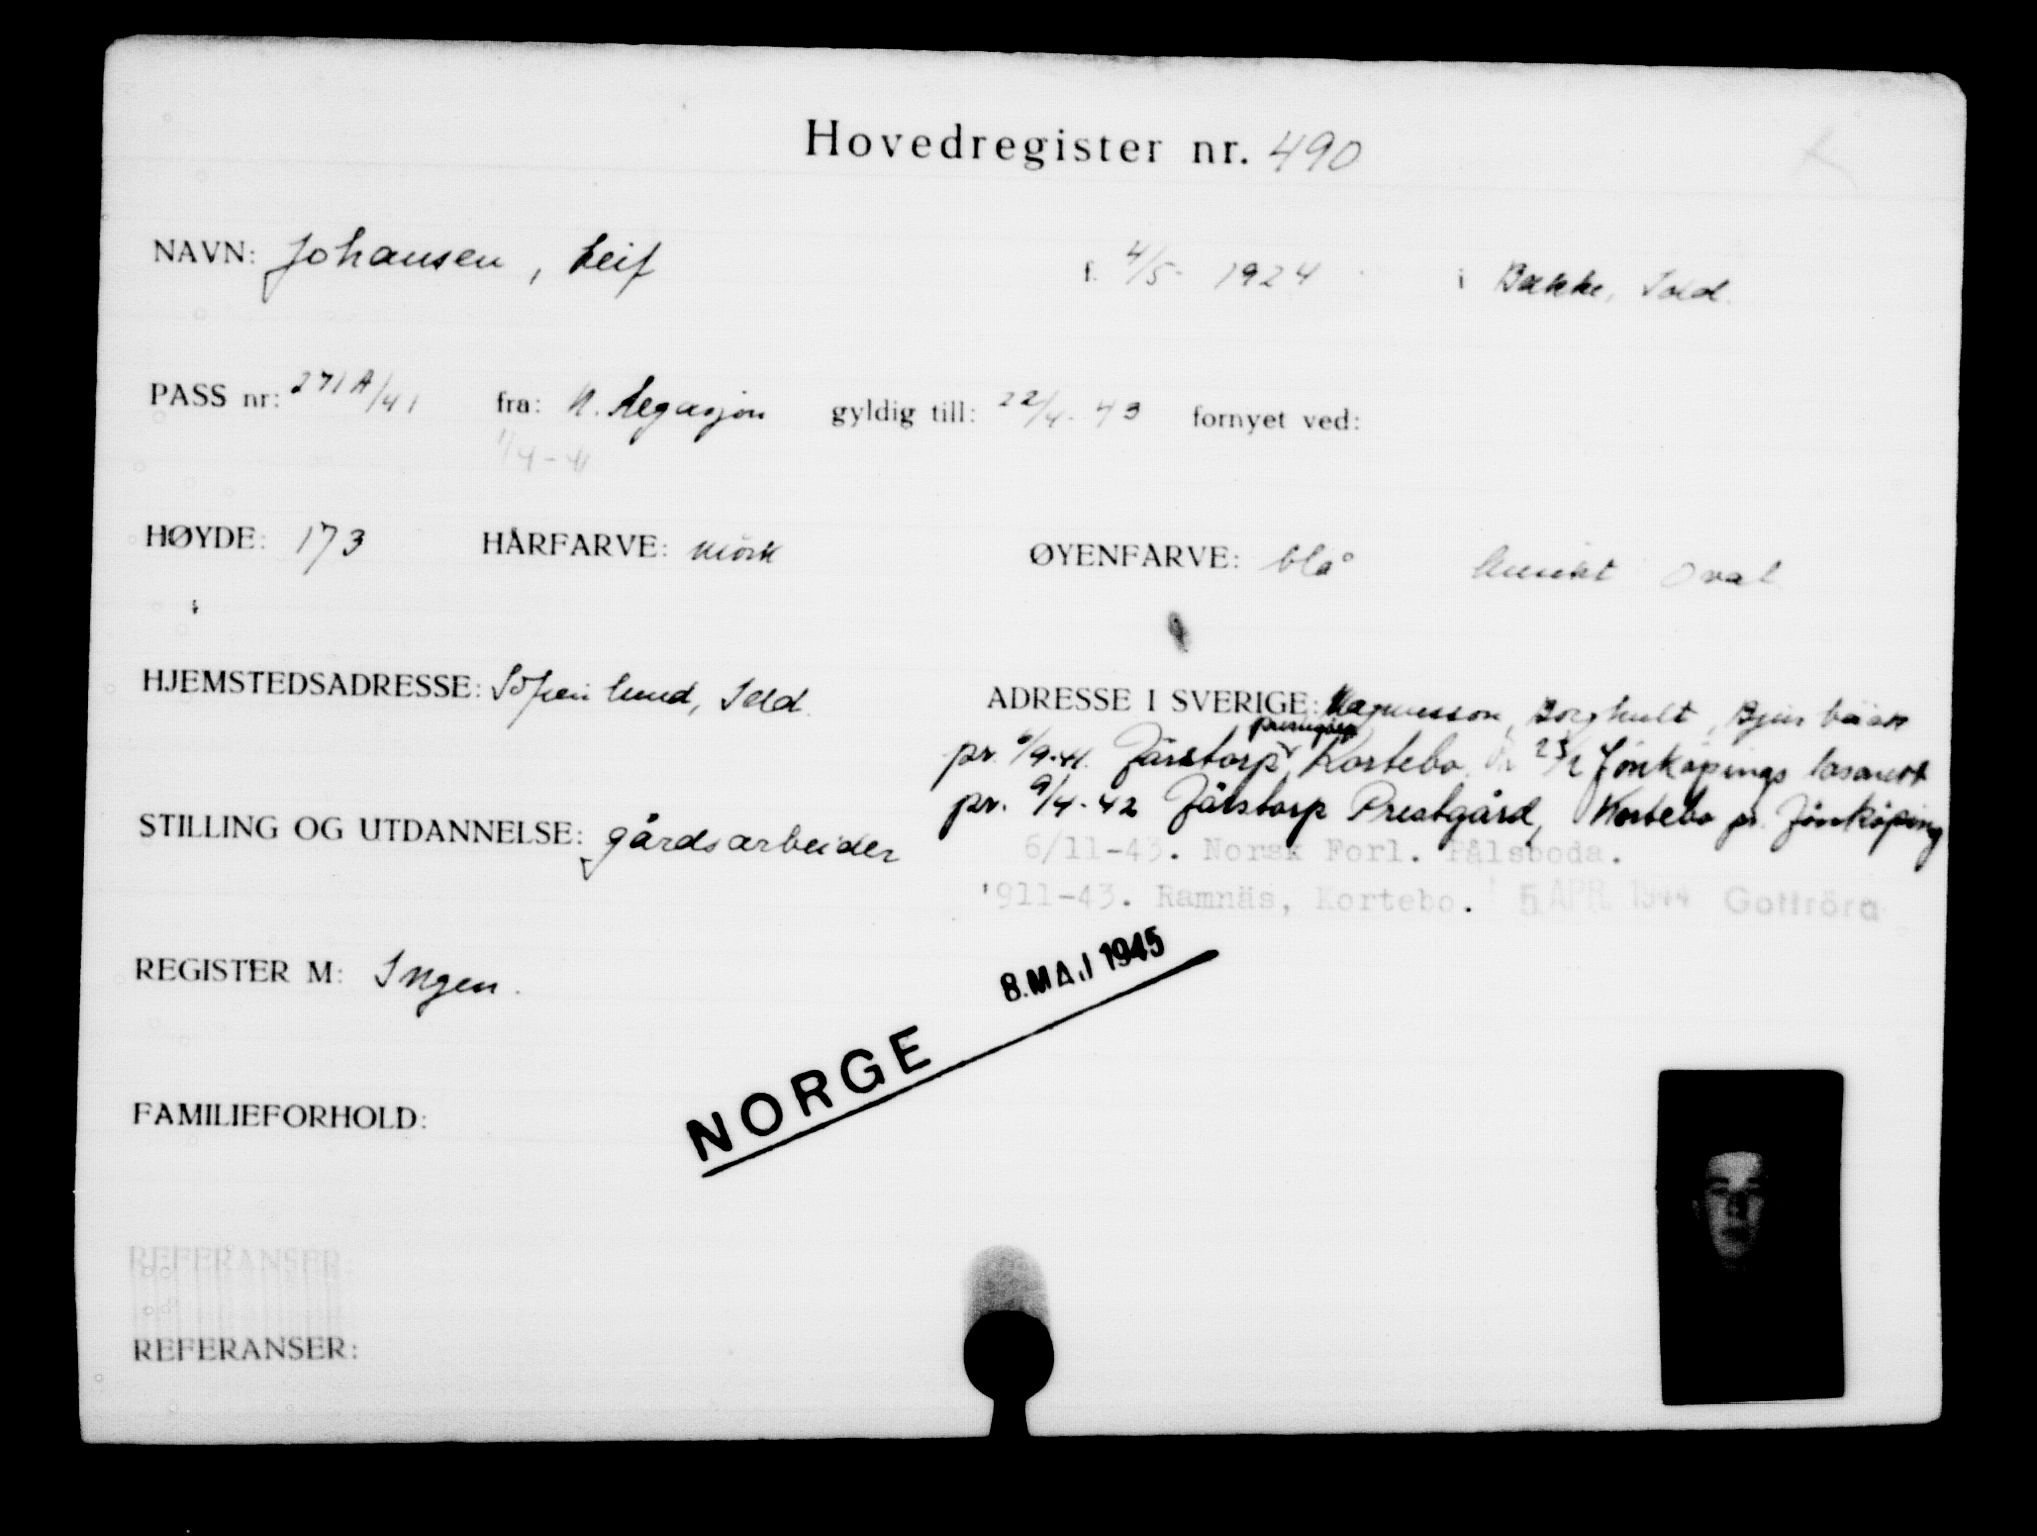 Hovedregister nr. 490
NAVN: Johansen, Leif f. 4/5- 1924 i Bakke, Idd.
PASS nr: 271A/41 fra: N. Legasjon gyldig till: 22/4-43 fornyet ved:
1/4-41
HØYDE: 173 HÅRFARVE: mörk ØYENFARVE: blå Ansikt Oval
HJEMSTEDSADRESSE: Sofienlund, Idd. ADRESSE I SVERIGE: Magnusson, Borghult, Bjurbäck
pr. 6/9-41. Järstorp, Kortebo. 25/2 Jönköpings lasarett
pr. 9/4-42 Järstorp Prestgård, Kortebo pr. Jönköping
STILLING OG UTDANNELSE: gårdsarbeider
6/11-43. Norsk Forl. Pålsboda.
'911-43. Ramnäs, Kortebo. 5 APR. 1944 Gottröra
REGISTER M: Ingen.
8. MAJ 1945
NORGE
FAMILIEFORHOLD:
REFERANSER:
REFERANSER: